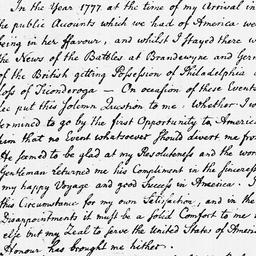 In the Year 1777 at the time of my Arrival in
the public Accounts which we had of America we
being in her Favour, and whilst I stayed there w
the News of the Battles at Brandewyne and Ger
of the British getting Possession of Philadelphia a
Loss of Ticonderoga — On occasion of these Event
put this Solemn Question to me. Whether I wo
termined to go by the first Opportunity to America
him that no Event whatsoever Should divert me from
He seemed to be glad at my Resoluteness and the wor
Gentleman returned me his Compliment in the sincerest
my happy Voyage and good Success in America. I
this Circumstance for my own Satisfaction, and in the
Disappointments it must be a Solid Comfort to me
else but my Zeal to serve the United States of Americ
Honour has brought me hither.